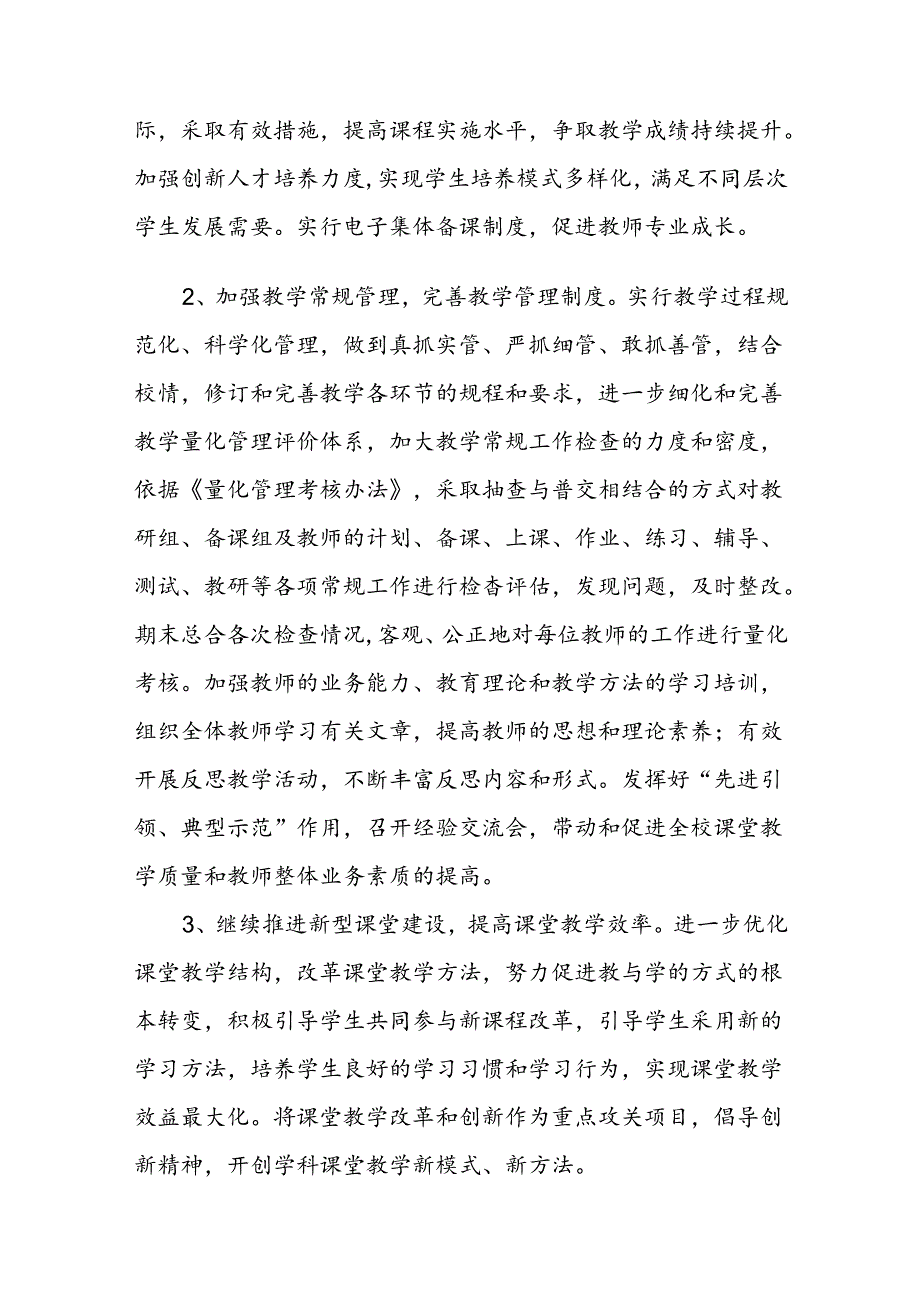 际，采取有效措施，提高课程实施水平，争取教学成绩持续提升。
加强创新人才培养力度,实现学生培养模式多样化，满足不同层次
学生发展需要。实行电子集体备课制度，促进教师专业成长。
2、加强教学常规管理，完善教学管理制度。实行教学过程规
范化、科学化管理，做到真抓实管、严抓细管、敢抓善管，结合
校情，修订和完善教学各环节的规程和要求，进一步细化和完善
教学量化管理评价体系，加大教学常规工作检查的力度和密度，
依据《量化管理考核办法》，采取抽查与普交相结合的方式对教
研组、备课组及教师的计划、备课、上课、作业、练习、辅导、
测试、教研等各项常规工作进行检杳评估，发现问题，及时整改。
期末总合各次检查情况,客观、公正地对每位教师的工作进行量化
考核。加强教师的业务能力、教育理论和教学方法的学习培训，
组织全体教师学习有关文章，提高教师的思想和理论素养；有效
开展反思教学活动，不断丰富反思内容和形式。发挥好“先进引
领、典型示范”作用，召开经验交流会，带动和促进全校课堂教
学质量和教师整体业务素质的提高。
3、继续推进新型课堂建设，提高课堂教学效率。进一步优化
课堂教学结构，改革课堂教学方法，努力促进教与学的方式的根
本转变，积极引导学生共同参与新课程改革，引导学生采用新的
学习方法，培养学生良好的学习习惯和学习行为，实现课堂教学
效益最大化。将课堂教学改革和创新作为重点攻关项目，倡导创
新精神，开创学科课堂教学新模式、新方法。